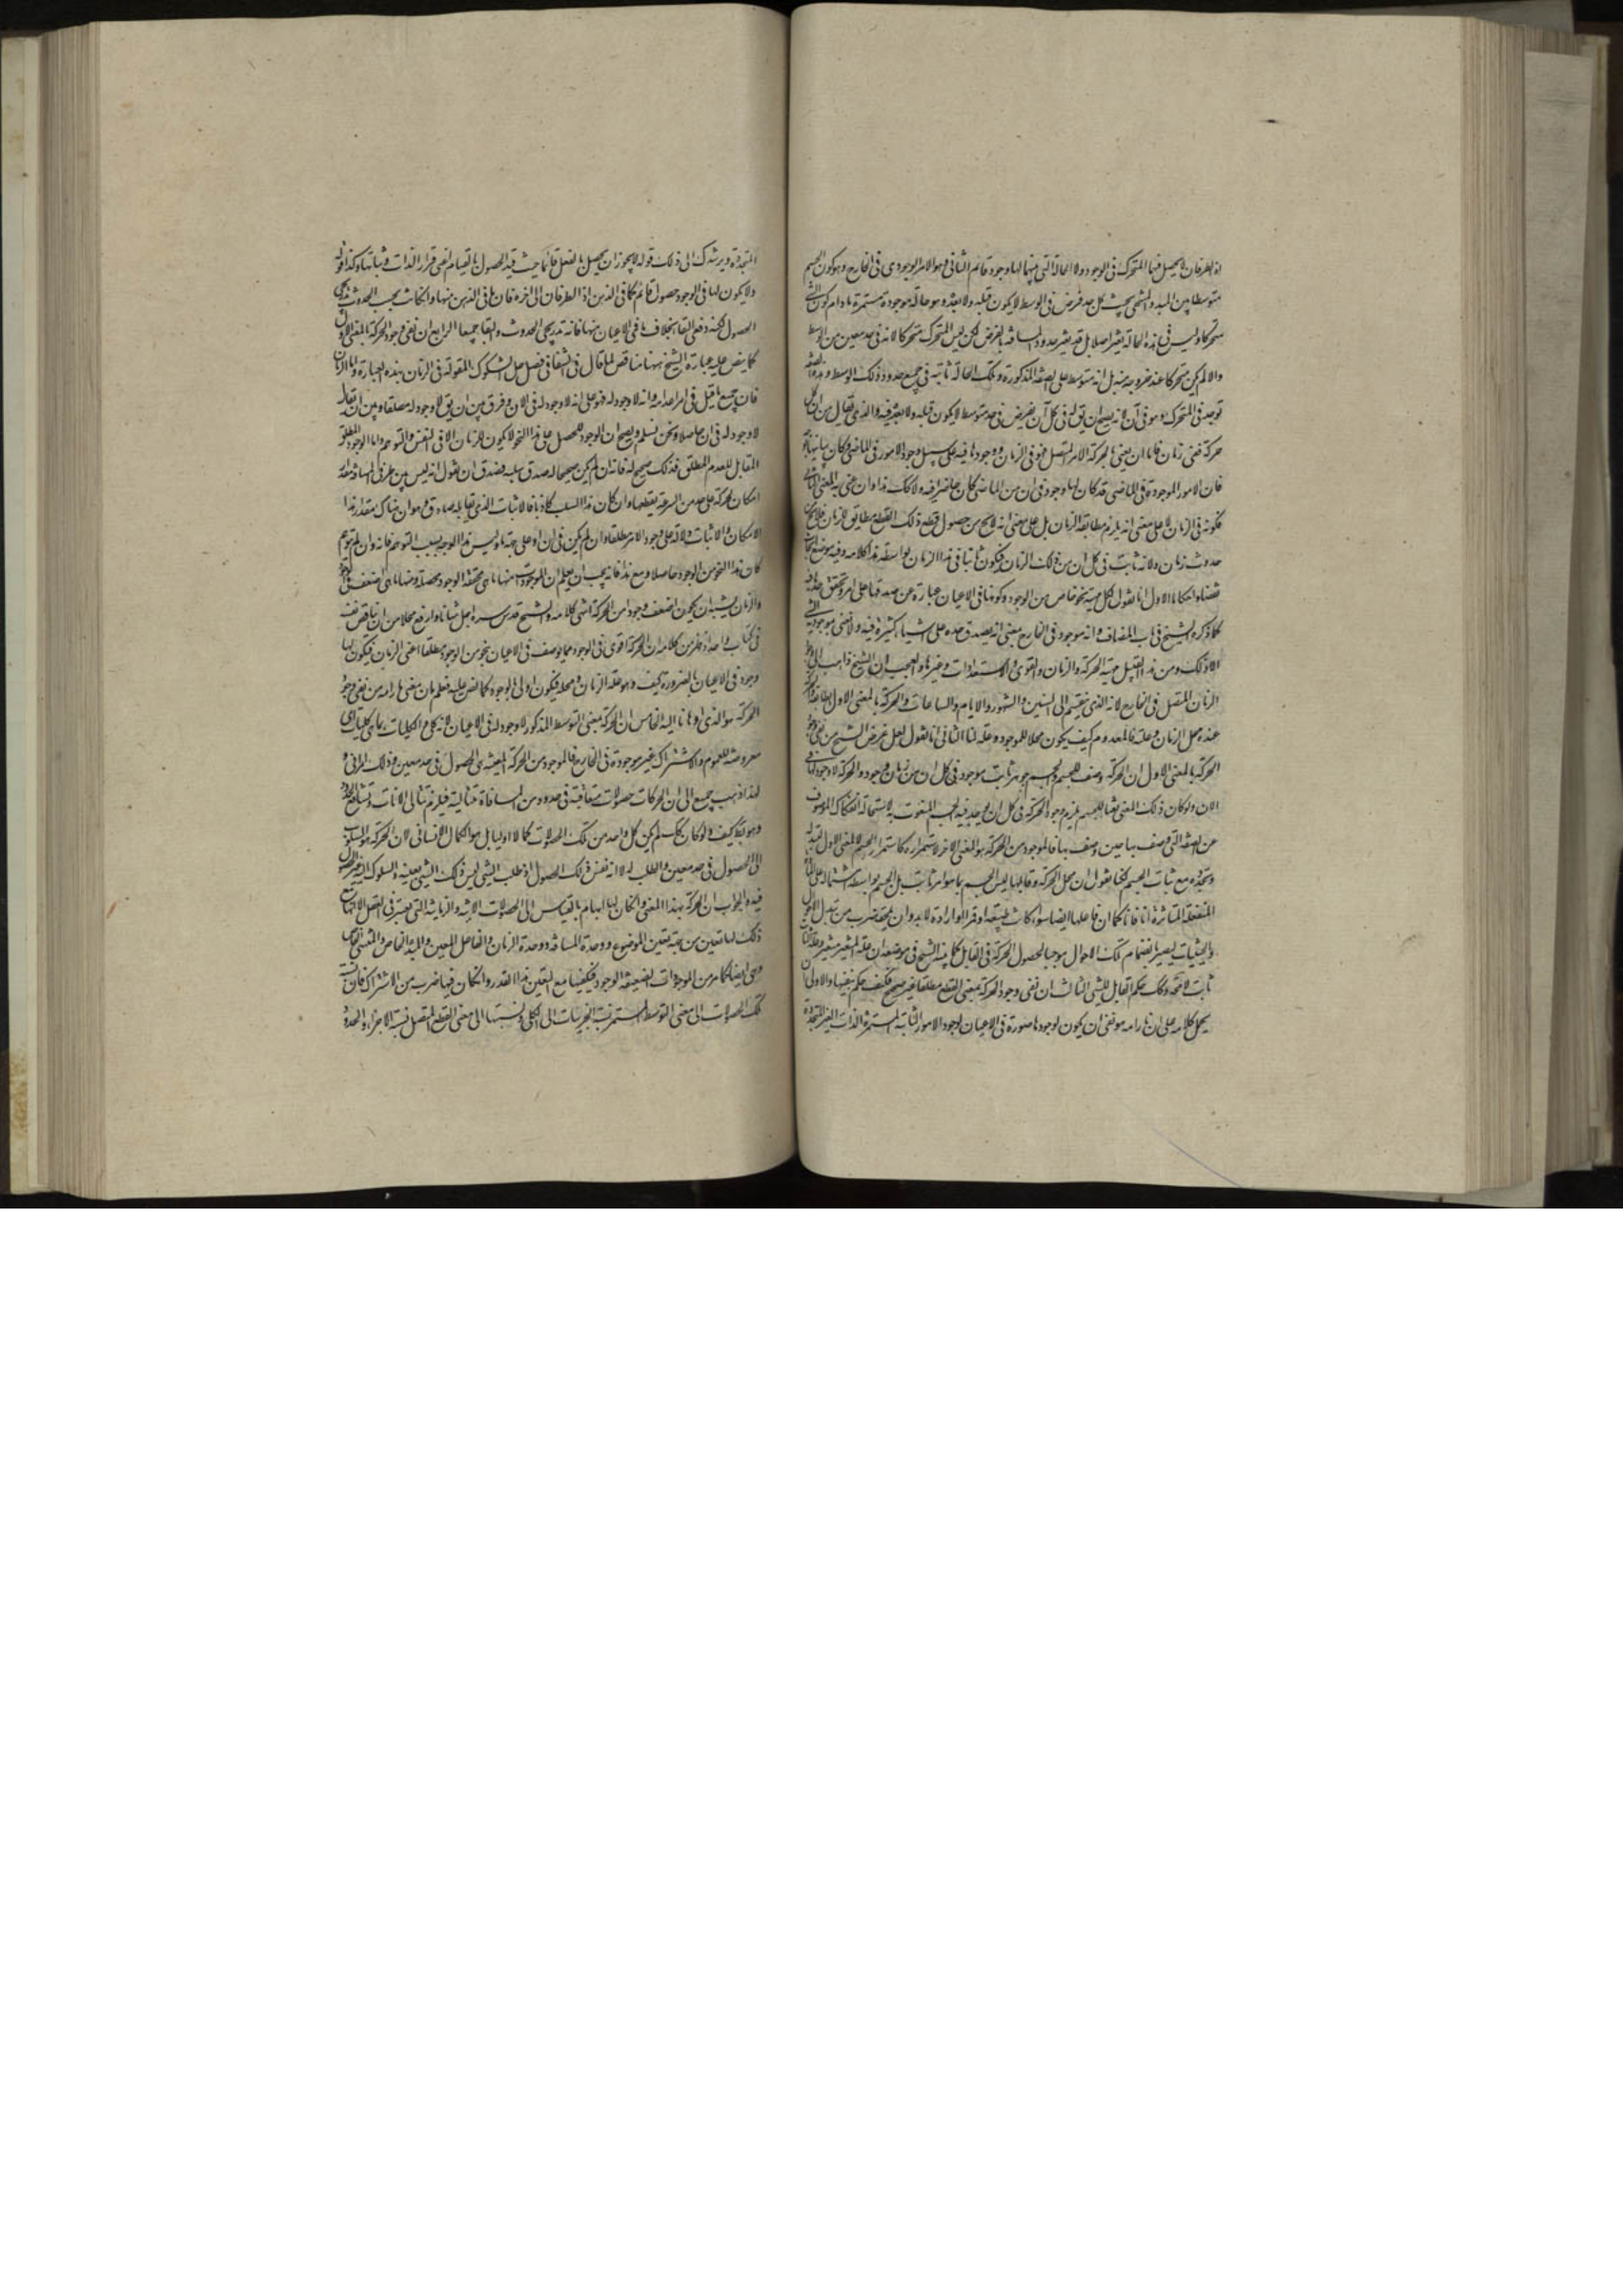 اذ الطرفان لا يحصل فيهما المتحرك فى الوجود ولا الحالة التى بينهما لها وجود قائم الثانى وهو الامر الوجودى فى الخارج وهو كون الجسم
متوسطا بين المبدء والمنتهى بحيث كل حد فرض فى الوسط لا يكون قبله ولا بعده فيه وهو حالة موجودة مستمرة ما دام كون الشئ
متحركا وليس فى هذه الحالة تغير اصلا بل قد يتغير حدود المسافة بالفرض لكن ليس المتحرك متحركا لانه فى حد معين من الوسط
والا لم يكن متحركا عند خروجه منه بل انه متوسط على الصفة المذكورة وتلك الحالة ثابتة فى جميع حدود ذلك الوسط وهذه الصفة
توجد فى المتحرك وهو فى آن لانه يصح ان يقال له فى كل آن يفرض انه فى حد متوسط لا يكون قبله ولا بعده فيه والذى يقال من ان كل
حركة ففى زمان فاما ان يعنى بالحركة الامر المتصل فهو فى الزمان ووجودها فيه على سبيل وجود الامور فى الماضى وكان يباينها
فان الامور الموجودة فى الماضى قد كان لها وجود فى ان من الماضى كان حاضرا فيه ولا كك هذا وان عنى به المعنى الثانى
فكونه فى الزمان لا على معنى انه يلزم مطابقة الزمان بل على معنى انه لا يخ من حصول قطع ذلك القطع مطابق للزمان فلا يخ من
حدوث زمان ولانه ثابت فى كل ان من ذلك الزمان فيكون ثابتا فى هذا الزمان بواسطته هذا كلامه وفيه موضع ابحاث
الاول انا نقول لكل مهية نحو خاص من الوجود وكونها فى الاعيان عبارة عن صدقها على امر وتحقق حدها فيه
كما ذكره الشيخ فى باب المضاف وانه موجود فى الخارج بمعنى انه يصدق حده على اشياء كثيرة فيه ولا نعنى بموجودية الشئ
الا ذلك ومن هذا القبيل مهية الحركة والزمان والقوى والاستعدادات وغيرها والعجب ان الشيخ ذاهب الى وجود
الزمان المتصل فى الخارج لانه الذى ينقسم الى السنين والشهور والايام والساعات والحركة بالمعنى الاول
عنده محل الزمان وعلته فالمعدوم كيف يكون محلا للموجود وعلة له الثانى انا نقول لعل غرض الشيخ من نفى وجود
الحركة بالمعنى الاول ان الحركة وصف للجسم والجسم جوهر ثابت موجود فى كل ان من زمان وجوده والحركة لا وجود لها فى
الان ولو كان ذلك المعنى نعتا للجسم يلزم وجود الحركة فى كل ان يوجد فيه الجسم المنعوت به لاستحالة انفكاك الموصوف
عن الصفة التى وصف بها حين وصف بها فالموجود من الحركة هو المعنى الاخر لاستمراره كاستمرار الجسم لا المعنى الاول
وتجدده مع ثبات الجسم لكنا نقول ان محل الحركة وقابلها ليس الجسم بما هو امر ثابت بل الجسم بواسطة اشتماله على المادة
المنفعلة المتاثرة انا فانا كما ان فاعلها ايضا سواء كانت طبيعة او قسرا او ارادة لابد وان يلحقه ضرب من تبدل الاحوال
والحيثيات ليصير بانضمام تلك الاحوال موجبا لحصول الحركة فى القابل كما بينه الشيخ فى موضعه ان علة المتغير متغير وعلة الثابت
ثابت لا محة وكك حكم القابل للشئ الثالث ان نفى وجود الحركة بمعنى القطع مطلقا غير صحيح فكيف حكم بنفيها والاولى ان
يحمل كلامه على ان ما رامه هو نفى ان يكون لوجودها صورة فى الاعيان لوجود الامور الثابتة المستمرة الذات الغير المتجددة
المتجددة ويرشدك الى ذلك قوله لا يجوز ان يحصل بالفعل قائما حيث قيد الحصول بالقيام اعنى قرار الذات وثباتها وكذا قوله
ولا يكون لها فى الوجود حصول قائم كما فى الذهن اذ الطرفان الى اخره فان ما فى الذهن منها وان كانت بحسب الحدوث تدريجى
الحصول لكنه دفعى البقاء بخلاف ما فى الاعيان منها فانه تدريجى الحدوث والبقاء جميعا الرابع ان نفى وجود الحركة بالمعنى الاول
كما ينص عليه عبارة الشيخ ههنا مناقض لما قال فى الشفا فى فصل حل الشكوك المقولة فى الزمان بهذه العبارة واما الزمان
فان جميع ما قيل فى امر اعدامه وانه لا وجود له فهو على انه لا وجود له فى الان وفرق بين ان يق لا وجود له مطلقا وبين ان يقال
لا وجود له فى ان حاصلا ونحن نسلم ونصحح ان الوجود المحصل على هذا النحو لا يكون للزمان الا فى النفس والتوهم واما الوجود المطلق
المقابل للعدم المطلق فذلك صحيح له فانه ان لم يكن صحيحا له صدق سلبه فصدق ان نقول انه ليس بين طرفى المسافة مقدار
امكان لحركة على حد من السرعة يقطعها وان كان هذا السلب كاذبا فالاثبات الذى يقابله صادق وهو ان هناك مقدار هذا
الامكان والاثبات دلالة على وجود الامر مطلقا وان لم يكن فى ان او على جهة ما وليس هذا الوجه بسبب التوهم فانه وان لم يتوهم
كان هذا النحو من الوجود حاصلا ومع هذا فانه يجب ان يعلم ان الموجودات منها ما هى محققة الوجود محصلة ومنها ما هى اضعف فى الوجود
والزمان يشبه ان يكون اضعف وجودا من الحركة انتهى كلامه والشيخ قدس سره اجل شانا وارفع محلا من ان يناقض نفسه
فى كتاب واحد اذ ظهر من كلامه ان الحركة اقوى فى الوجود مما يوصف فى الاعيان بنحو من الوجود مطلقا اعنى الزمان فيكون لها
وجود فى الاعيان بالضرورة كيف وهو علة الزمان ومحله فيكون اولى بالوجود كما نص عليه فعلم بان معنى ما رامه من نفى وجود
الحركة هو الذى اومانا اليه الخامس ان الحركة بمعنى التوسط المذكور لا وجود له فى الاعيان لانه كلى والكليات بما هى كليات اى
معروضة للعموم والاشتراك غير موجودة فى الخارج فالموجود من الحركة المعينة هى الحصول فى حد معين وذلك امر انى و
لهذا ذهب جمع الى ان الحركات حصولات متعاقبة فى حدود من المسافة متتالية فيلزم تتالى الانات وتشافع الحدود
وهو بط كيف ولو كان كك لم يكن كل واحد من تلك الحصولات كمالا اوليا بل هو الكمال الثانى لان الحركة هو السلوك
الى الحصول فى حد معين والطلب له لا انه نفس ذلك الحصول اذ طلب الشئ ليس ذلك الشئ بعينه والسلوك اليه غير الحصول
فيه والجواب ان الحركة بهذا المعنى وان كان لها ابهام بالقياس الى الحصولات الانية والزمانية التى يعتبر فى العقل لا انها مع
ذلك لها تعين من جهة تعين الموضوع ووحدة المسافة ووحدة الزمان والفاعل المعين والمبدء الخاص والمنتهى الخاص
وهى ايضا كما مر من الموجودات الضعيفة الوجود فيكفيها مع التعين هذا القدر وان كان فيها ضرب من الاشتراك فان نسبة
تلك الحصولات الى معنى التوسط المستمر نسبة الجزئيات الى الكلى ونسبتها الى معنى القطع المتصل نسبة الاجزاء والحدود